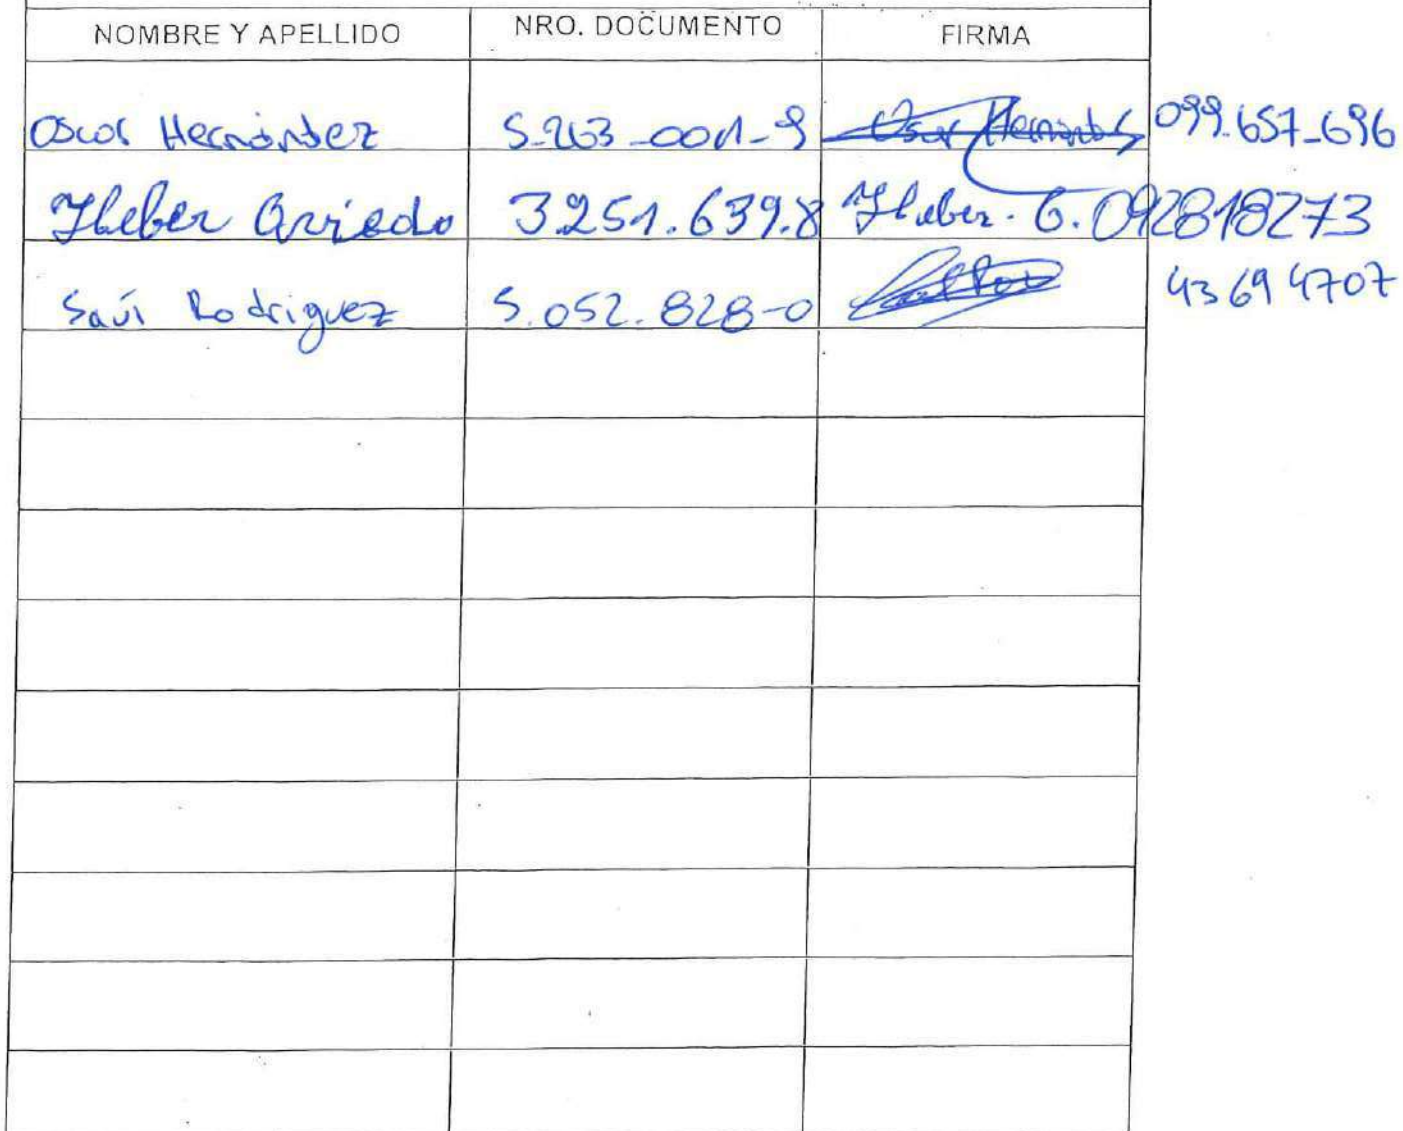 NOMBRE Y APELLIDO NRO. DOCUMENTO FIRMA
Oscar Hernández 5-263-001-9 Oscar Hernández 099.657-696
Heber Oviedo 3251.639.8 Heber. O. 092818273
Saúl Rodriguez 5.052.828-0 43 69 4707